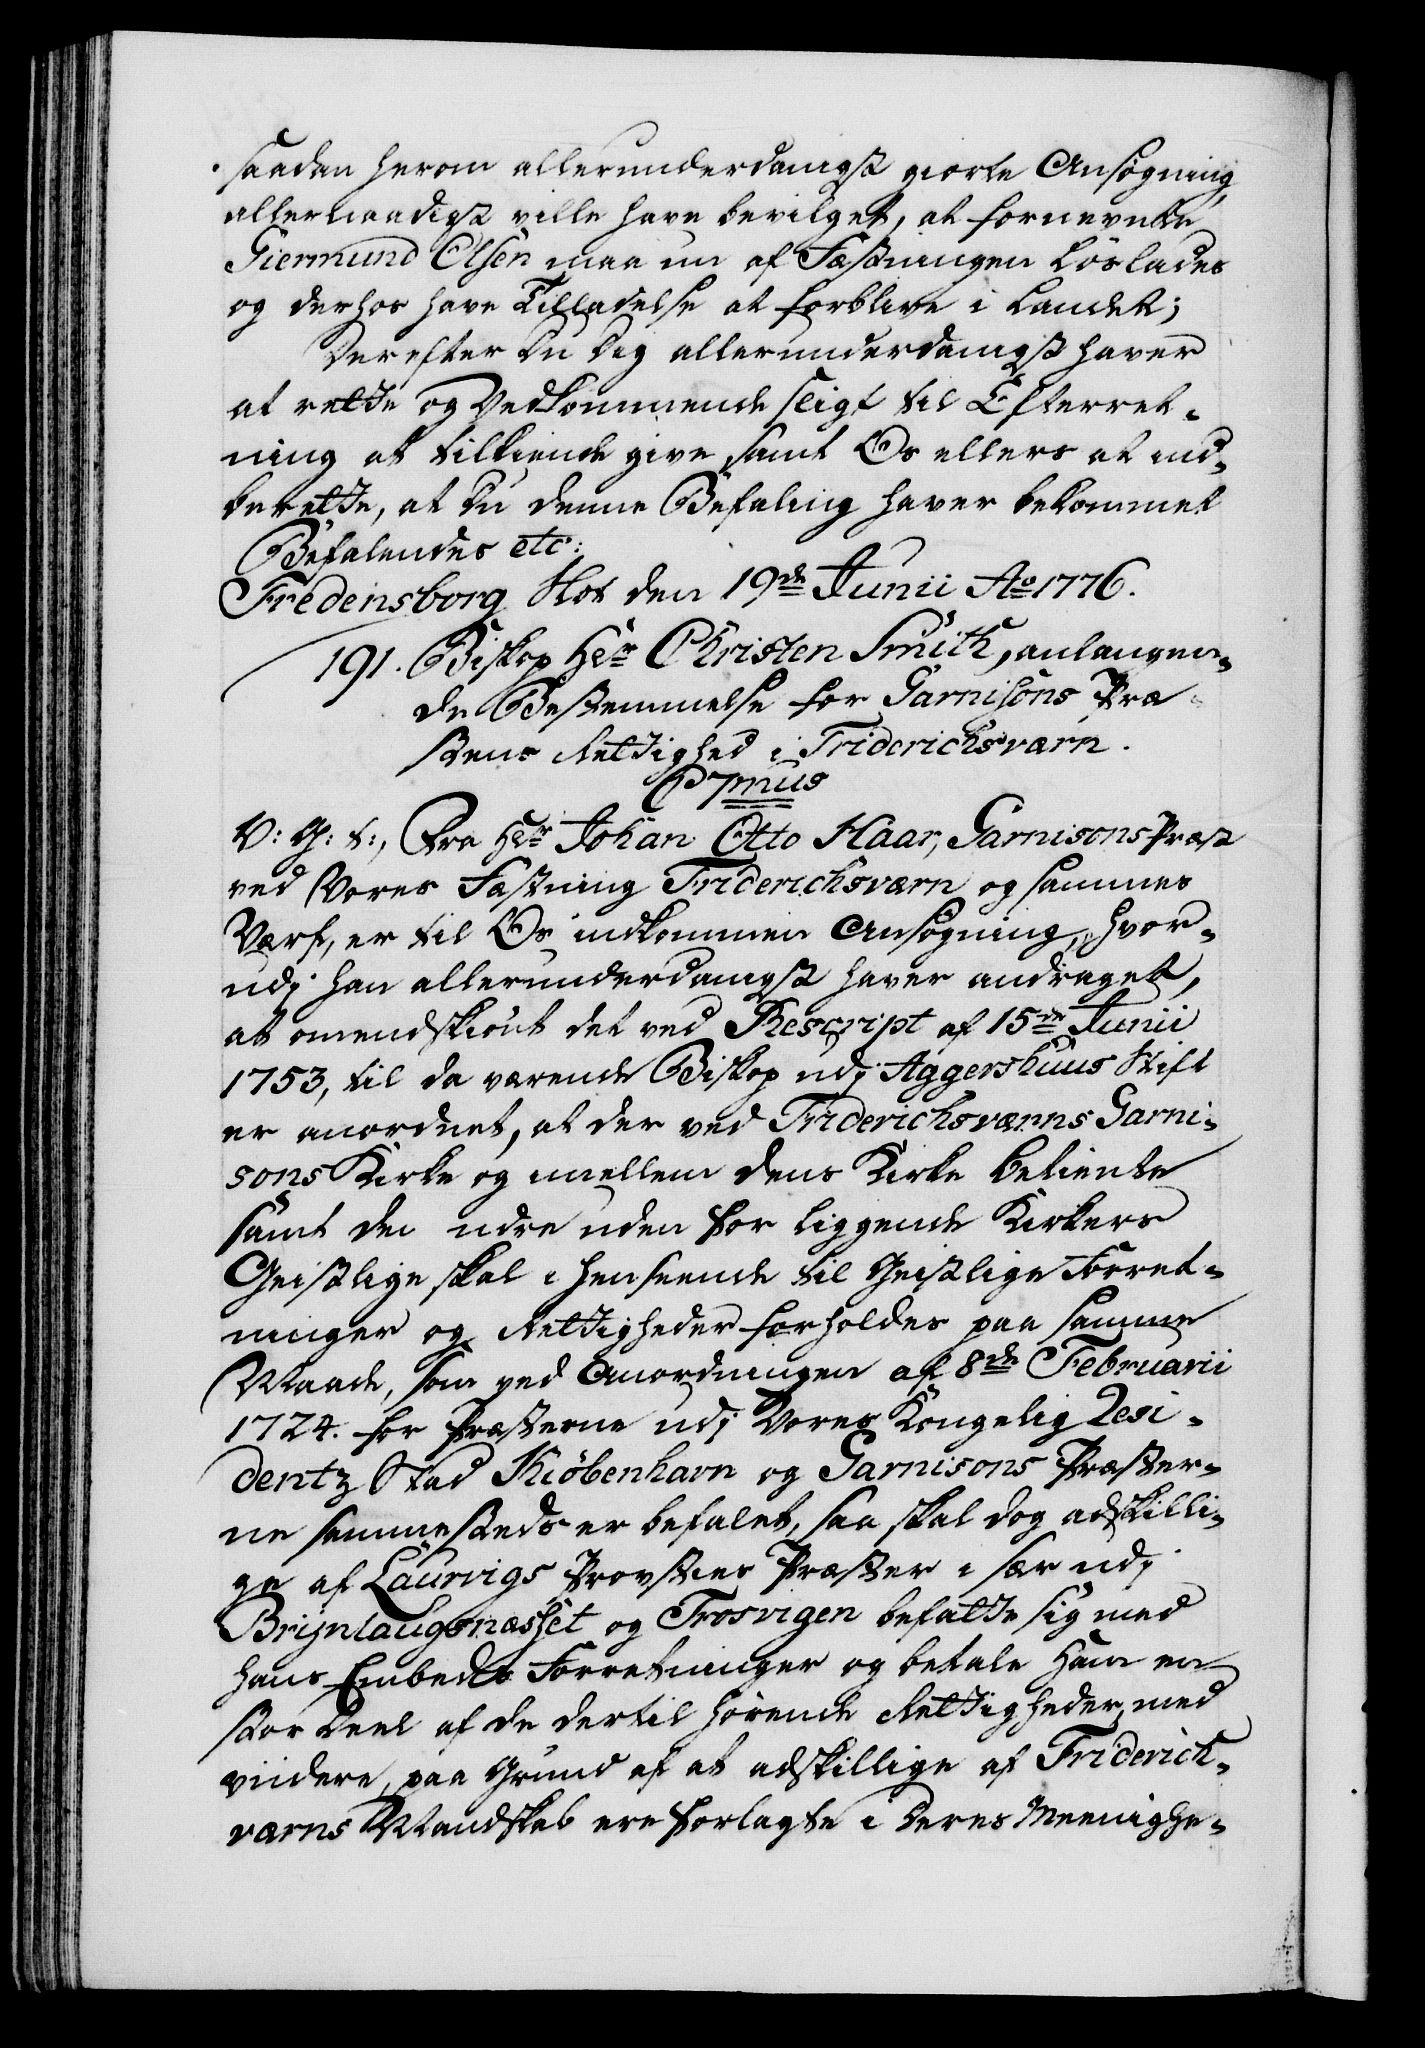 saadan herom allerunderdanigst giorte Ansøgning,
allernaadigst ville have bevilget, at fornevnte
Giermund Olsen maa nu af Fæstningen löslades
og derhos have Tilladelse at forblive i Landet;
Derefter Du Dig allerunderdanigst haver
at rette og Vedkommende sligt til Efterret-
ning at tilkiende give, samt Os ellers at ind-
berette, at Du denne Befaling haver bekommet
Befalendes etc:
Fredensborg Slot den 19de Junii Ao 1776.
191. Biskop Hr Christen Smith, anlangen-
de Bestemmelse for Garnisons Præ-
stens Rettighed i Friderichsværn.
C 7mus
V: G: t:, Fra Hr Johan Otto Haar, Garnisons Præst
ved Vores Fæstning Friderichsværn og sammes
Værf, er til Os indkommen Ansøgning, hvor-
udj han allerunderdanigst haver andraget,
at omendskiönt det ved Rescript af 15de Junii
1753, til da værende Biskop udj Aggershuus Stift
er anordnet, at der ved Friderichsværns Garni-
sons Kirke og imellem dens Kirke betiente
samt de udre uden for liggende Kirkers
Geistlige skal i henseende til Geistlige Forret-
ninger og Rettigheder forholdes paa samme
Maade, som ved Anordningen af 8de Februarii
1724. for Præsterne udj Vores Kongelig Resi-
dentz Stad Kiöbenhavn og Garnisons Præster-
ne sammesteds er befalet, saa skal dog adskilli-
ge af Laurvigs Provsties Præster i sær udj
Brynlaugsnæsset og Frosvigen befatte sig med
hans Embeds Forretninger og betale ham en
stor Deel af de dertil hörende Rettigheder med
viidere, paa Grund af at adskillige af Friderich-
værns Mandskab ere forlagte i deres Meenighe-